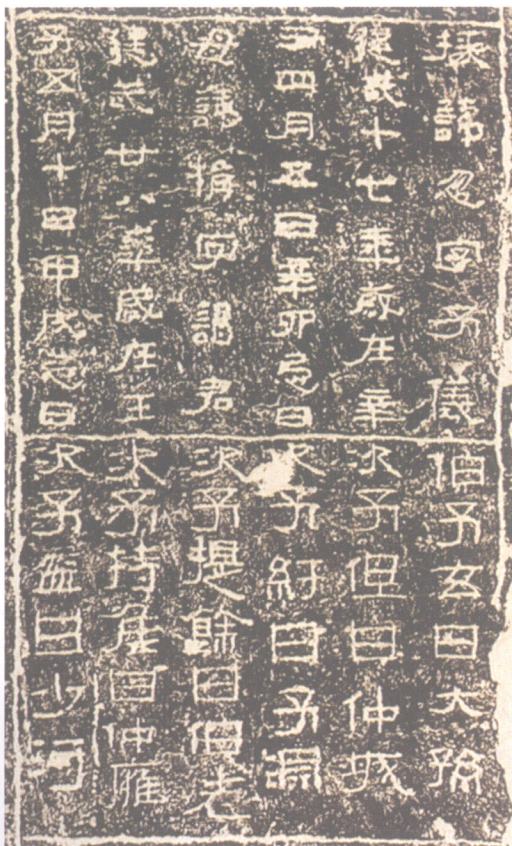 掾諱忽字子儀
建武十七年歲在辛
丑四月五日辛卯忌日
母諱捐字謁君
建武廿八年歲在壬
子五月十日甲戌忌日
伯子玄曰大孫
次子但曰仲城
次子紆曰子淵
次子提餘曰伯老
次子持侯曰仲雍
次子盆曰少河